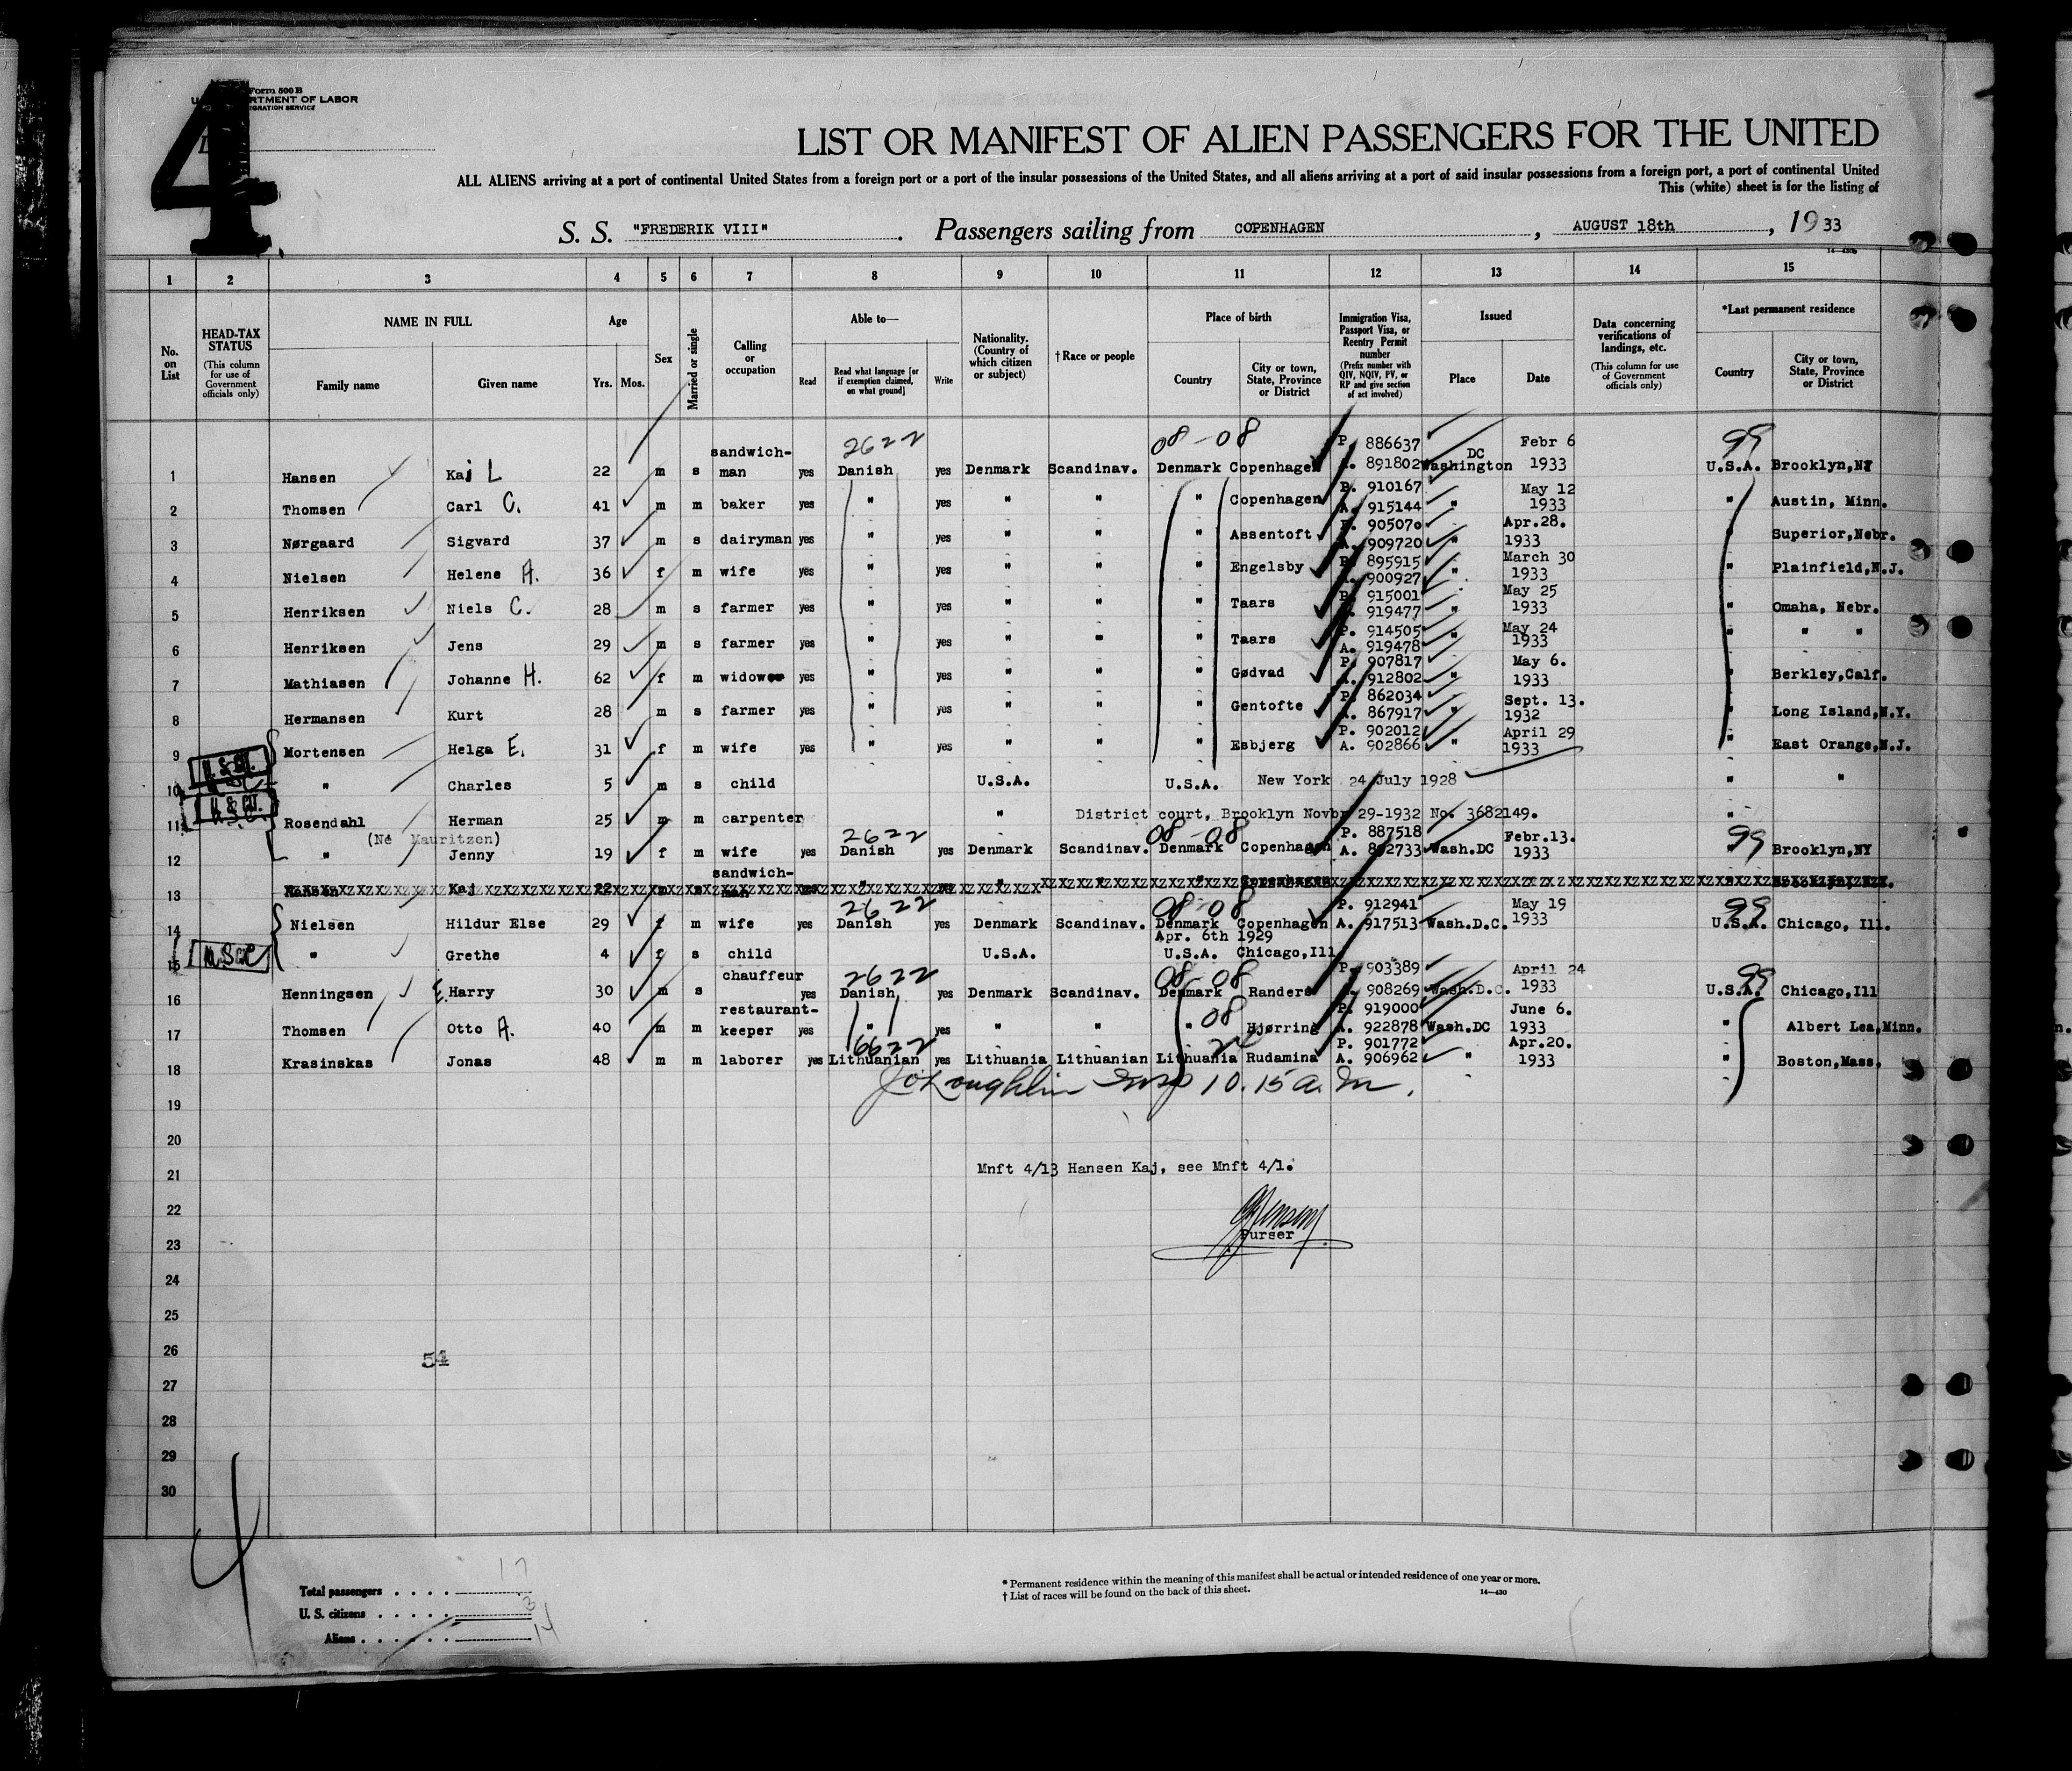 4
Form 500 B
U. S. DEPARTMENT OF LABOR
IMMIGRATION SERVICE
LIST OR MANIFEST OF ALIEN PASSENGERS FOR THE UNITED
ALL ALIENS arriving at a port of continental United States from a foreign port or a port of the insular possessions of the United States, and all aliens arriving at a port of said insular possessions from a foreign port, a port of continental United
This (white) sheet is for the listing of
S. S. "FREDERIK VIII" . Passengers sailing from COPENHAGEN , AUGUST 18th , 1933
14—430b
1 2 3 4 5 6 7 8 9 10 11 12 13 14 15
No. on List
HEAD-TAX STATUS (This column for use of Government officials only)
NAME IN FULL Family name Given name
Age Yrs. Mos.
Sex
Married or single
Calling or occupation
Able to— Read Read what language [or if exemption claimed, on what ground] Write
Nationality. (Country of which citizen or subject)
†Race or people
Place of birth Country City or town, State, Province or District
Immigration Visa, Passport Visa, or Reentry Permit number (Prefix number with QIV, NQIV, PV, or RP and give section of act involved)
Issued Place Date
Data concerning verifications of landings, etc. (This column for use of Government officials only)
*Last permanent residence Country City or town, State, Province or District
2622 08-08 99
1 Hansen Kaj L 22 m s sandwich-man yes Danish yes Denmark Scandinav. Denmark Copenhagen P. 886637 A. 891802 Washington DC Febr 6 1933 U.S.A. Brooklyn,NY
2 Thomsen Carl C. 41 m m baker yes " yes " " " Copenhagen P. 910167 A. 915144 " May 12 1933 " Austin, Minn.
3 Nørgaard Sigvard 37 m s dairyman yes " yes " " " Assentoft P. 905070 A. 909720 " Apr.28. 1933 " Superior,Nebr.
4 Nielsen Helene A. 36 f m wife yes " yes " " " Engelsby P. 895915 A. 900927 " March 30 1933 " Plainfield,N.J.
5 Henriksen Niels C. 28 m s farmer yes " yes " " " Taars P. 915001 A. 919477 " May 25 1933 " Omaha, Nebr.
6 Henriksen Jens 29 m s farmer yes " yes " " " Taars P. 914505 A. 919478 " May 24 1933 " " "
7 Mathiasen Johanne H. 62 f m widow yes " yes " " " Gødvad P. 907817 A. 912802 " May 6. 1933 " Berkley,Calf.
8 Hermansen Kurt 28 m s farmer yes " yes " " " Gentofte P. 862034 A. 867917 " Sept. 13. 1932 " Long Island,N.Y.
9 Mortensen Helga E. 31 f m wife yes " yes " " " Esbjerg P. 902012 A. 902866 " April 29 1933 " East Orange,N.J.
U.S. CIT.
10 " Charles 5 m s child U.S.A. U.S.A. New York 24 July 1928 " "
U.S. CIT.
11 Rosendahl Herman 25 m m carpenter " District court, Brooklyn Novbr 29-1932 No. 3682149. "
(Né Mauritzen)
2622 08-08 99
12 " Jenny 19 f m wife yes Danish yes Denmark Scandinav. Denmark Copenhagen P. 887518 A. 892733 Wash.DC Febr.13. 1933 " Brooklyn,NY
13 Hansen Kaj 22 m s sandwich-man yes " yes " " " Copenhagen " Brooklyn, NY.
2622 08-08 99
14 Nielsen Hildur Else 29 f m wife yes Danish yes Denmark Scandinav. Denmark Copenhagen P. 912941 A. 917513 Wash.D.C. May 19 1933 U.S.A. Chicago, Ill.
Apr. 6th 1929
15 " Grethe 4 f s child U.S.A. U.S.A. Chicago,Ill
2622 08-08 99
16 Henningsen E. Harry 30 m s chauffeur yes Danish yes Denmark Scandinav. Denmark Randers P. 903389 A. 908269 Wash.D.C. April 24 1933 U.S.A. Chicago,Ill
08
17 Thomsen Otto A. 40 m m restaurant-keeper yes " yes " " " Hjørring P. 919000 A. 922878 Wash.DC June 6. 1933 " Albert Lea,Minn.
6622
18 Krasinskas Jonas 48 m m laborer yes Lithuanian yes Lithuania Lithuanian Lithuania Rudamina P. 901772 A. 906962 " Apr.20. 1933 " Boston,Mass.
10.15 a.m.
19
20
21 Mnft 4/13 Hansen Kaj, see Mnft 4/1.
22
23 Purser
24
25
26 54
27
28
29
30
4
Total passengers . . . . 17
U. S. citizens . . . . . 3
Aliens . . . . . . 14
* Permanent residence within the meaning of this manifest shall be actual or intended residence of one year or more.
† List of races will be found on the back of this sheet.
14—430